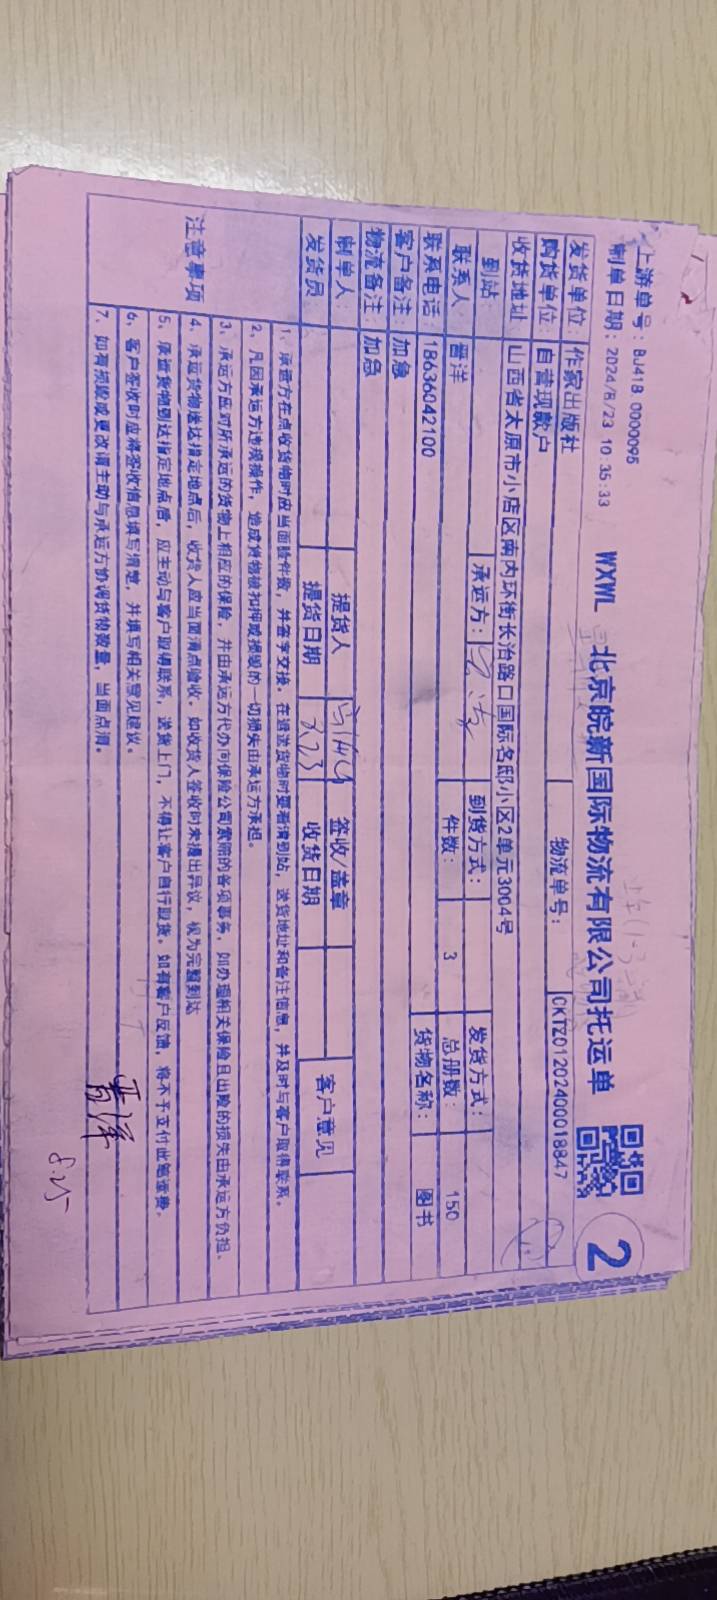 上游单号：BJ41B 0000095
制单日期：2024/8/23 10:35:33
WXWL 北京皖新国际物流有限公司托运单
2
发货单位：作家出版社 物流单号：CKTZ01202400018847
购货单位：自营现款户
收货地址 山西省太原市小店区南内环街长治路口国际名邸小区2单元3004号
到站： 承运方： 到货方式： 发货方式：
联系人 晋洋 件数： 3 总册数： 150
联系电话：18636042100 货物名称： 图书
客户备注：加急
物流备注：加急
制单人： 提货人 签收/盖章 客户意见
发货员： 提货日期 8.23 收货日期
注意事项
1、承运方在点收货物时应当面验件数，并签字交接。在运送货物时要看清到站，送货地址和备注信息，并及时与客户取得联系。
2、凡因承运方违规操作，造成货物被扣押或损毁的一切损失由承运方承担。
3、承运方应对所承运的货物上相应的保险，并由承运方代办向保险公司索赔的各项事务，如办理相关保险且出险的损失由承运方负担。
4、承运货物送达指定地点后，收货人应当面清点验收。如收货人签收时未提出异议，视为完整到达
5、承运货物到达指定地点后，应主动与客户取得联系，送货上门，不得让客户自行取货。如有客户反馈，将不予支付此笔运费。
6、客户签收时应将签收信息填写清楚，并填写相关意见建议。
7、如有损毁或更改请主动与承运方协调货物数量，当面点清。
晋洋
8.25